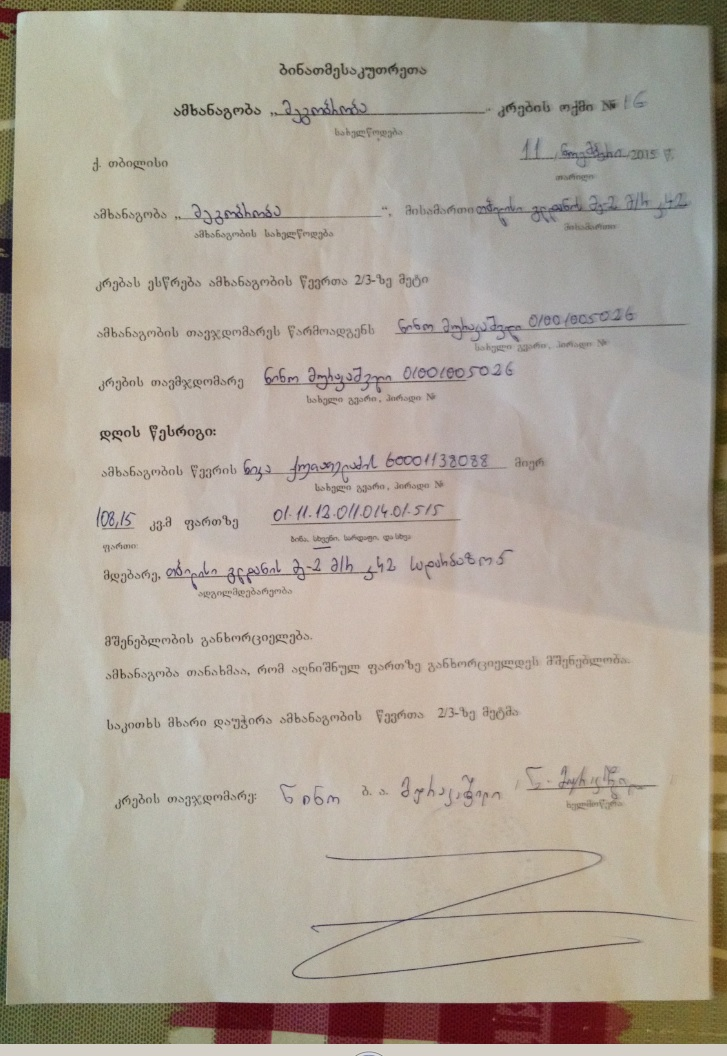 ბინათმესაკუთრეთა
ამხანაგობა „ მეგობრობა “ კრების ოქმი № 16
სახელწოდება
ქ. თბილისი
11 ნოემბერი 2015 წ.
თარიღი
ამხანაგობა „ მეგობრობა “, მისამართი თბილისი გლდანის მე-2 მ/რ კ42
ამხანაგობის სახელწოდება მისამართი
კრებას ესწრება ამხანაგობის წევრთა 2/3-ზე მეტი
ამხანაგობის თავჯდომარეს წარმოადგენს ნინო 01001005026
სახელი გვარი, პირადი №
კრების თავმჯდომარე ნინო 01001005026
სახელი გვარი, პირადი №
დღის წესრიგი:
ამხანაგობის წევრის ნიკა 60001138088 მიერ
სახელი გვარი, პირადი №
108,15 კვ.მ ფართზე 01.11.12.011.014.01.515
ფართი: ბინა, სხვენი, სარდაფი, და სხვა
მდებარე, თბილისი გლდანის მე-2 მ/რ კ42 სადარბაზო 5
ადგილმდებარეობა
მშენებლობის განხორციელება.
ამხანაგობა თანახმაა, რომ აღნიშნულ ფართზე განხორციელდეს მშენებლობა.
საკითხს მხარი დაუჭირა ამხანაგობის წევრთა 2/3-ზე მეტმა
კრების თავჯდომარე: ნინო ბ. ა.
ხელმოწერა